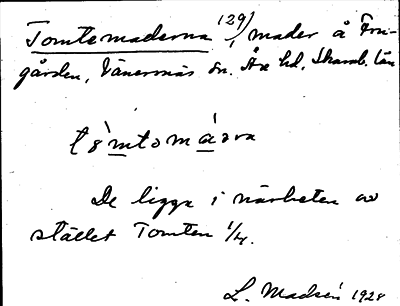 Tomtemaderna 129), mader å Fru-
gården, Vänersnäs sn. Åse hd, Skarab. län
De ligga i närheten av
stället Tomten 1/4.
L. Madsén 1928